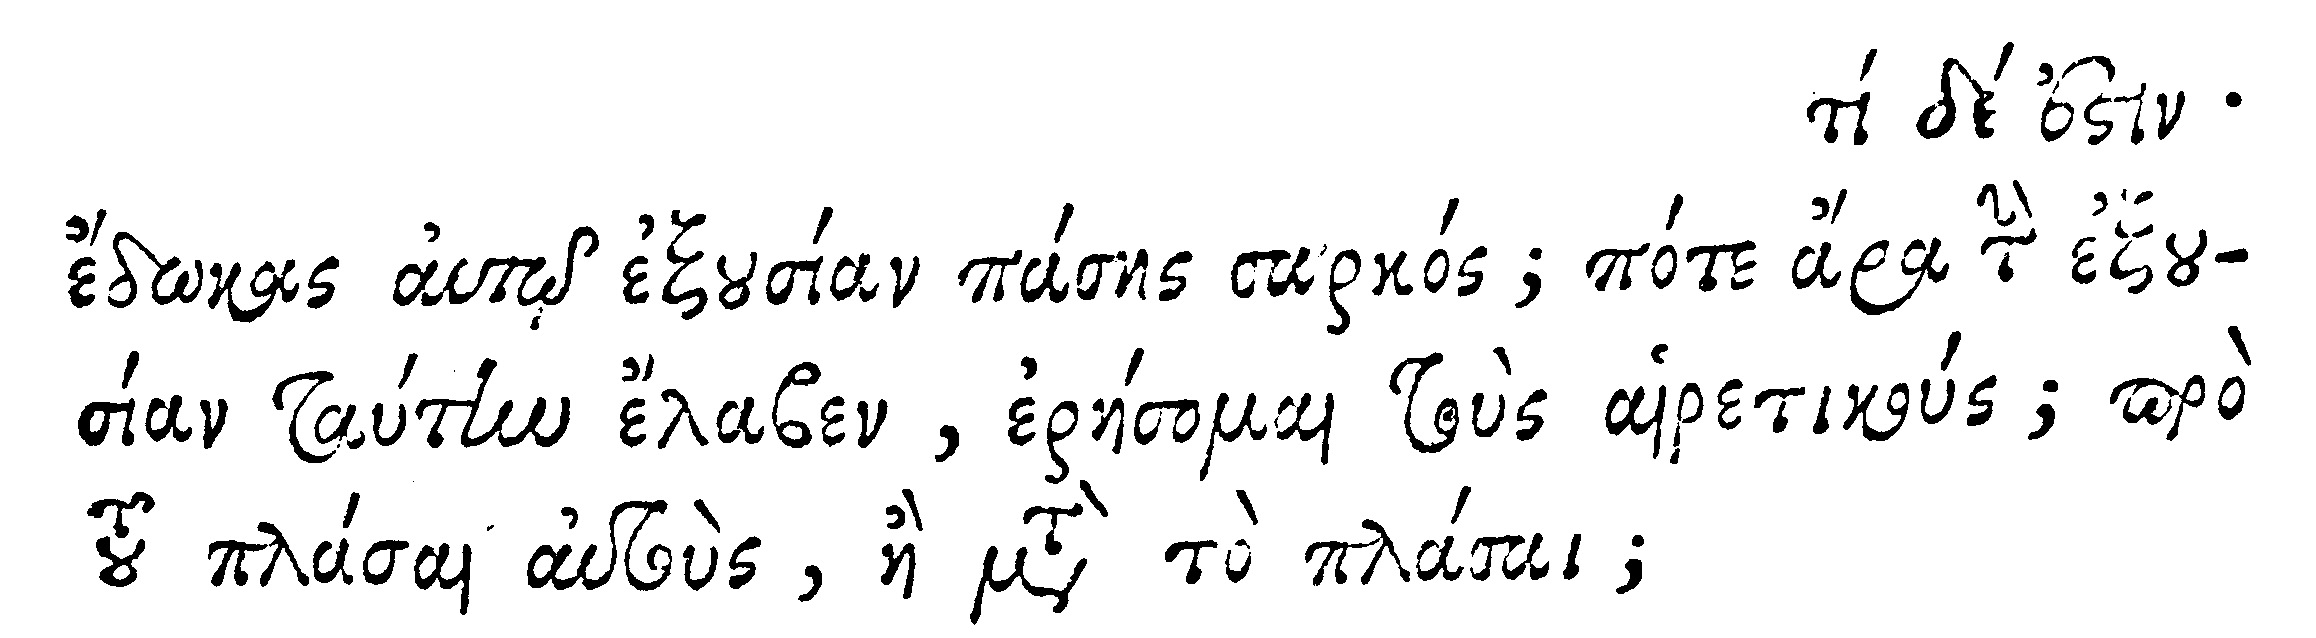 τί δέ ἐστιν·
ἔδωκας αὐτῷ ἐξουσίαν πάσης σαρκός; πότε ἄρα τὴν ἐξου-
σίαν ταύτην ἔλαβεν, ἐρήσομαι τοὺς αἱρετικούς; πρὸ
τοῦ πλάσαι αὐτοὺς, ἢ μετὰ τὸ πλάσαι;